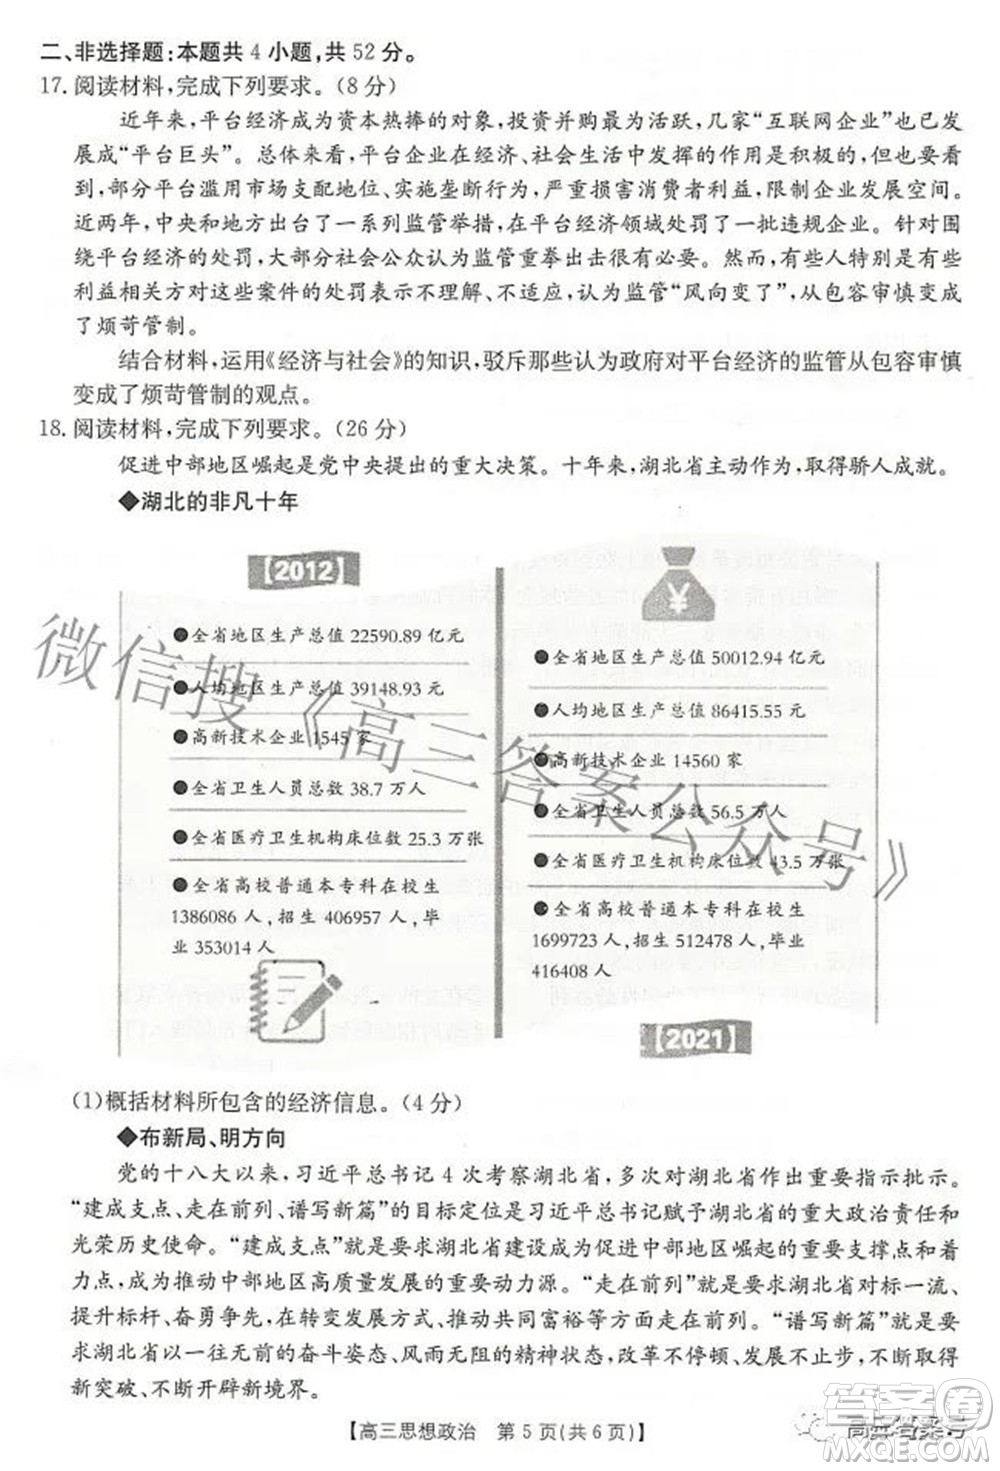 二、非选择题:本题共 4 小题,共 52 分。
17. 阅读材料,完成下列要求。(8 分)
近年来,平台经济成为资本热捧的对象,投资并购最为活跃,几家“互联网企业”已发
展成“平台巨头”。总体来看,平台企业在经济、社会生活中发挥的作用是积极的,但要看
到,部分平台滥用市场支配地位、实施垄断行为,严重损害消费者利益,挤占企业发展空间。
近两年,中央和地方出台了一系列监管举措,在平台经济领域处罚了一批违规企业。针对围
绕平台经济的处罚,大部分社会公众认为监管重拳出击很有必要。然而,有些人特别是有些
利益相关方对这些案件的处罚表示不理解、不适应,认为监管“风向变了”,从包容审慎变成
了烦苛管制。
结合材料,运用《经济与社会》的知识,驳斥那些认为政府对平台经济的监管从包容审慎
变成了烦苛管制的观点。
18. 阅读材料,完成下列要求。(26 分)
促进中部地区崛起是党中央提出的重大决策。十年来,湖北省主动作为,取得骄人成就。
◆湖北的非凡十年
【2012】
●全省地区生产总值 22590.89 亿元
●人均地区生产总值 39148.93 元
●高新技术企业 1545 家
●全省卫生人员总数 38.7 万人
●全省医疗卫生机构床位数 25.3 万张
●全省高校普通本专科在校生
1386086 人,招生 406957 人,毕
业 353014 人
¥
●全省地区生产总值 50012.94 亿元
●人均地区生产总值 86415.55 元
●高新技术企业 14560 家
●全省卫生人员总数 56.5 万人
●全省医疗卫生机构床位数 43.5 万张
●全省高校普通本专科在校生
1699723 人,招生 512478 人,毕业
416408 人
【2021】
微信搜《高三答案公众号》
(1)概括材料所包含的经济信息。(4 分)
◆布新局、明方向
党的十八大以来,习近平总书记 4 次考察湖北省,多次对湖北省作出重要指示批示。
“建成支点、走在前列、谱写新篇”的目标定位是习近平总书记赋予湖北省的重大政治责任和
光荣历史使命。“建成支点”就是要求湖北省建设成为中部地区崛起的重要支撑点和着
力点,不断成为推动中部地区高质量发展的重要动力源。“走在前列”就是要求湖北省对标一流、
提升标杆、奋勇争先,在转变发展方式、推动共同富裕等方面走在前列。“谱写新篇”就是要
求湖北省以一往无前的奋斗姿态、风雨无阻的精神状态,改革不停顿、发展不止步,不断实现
新突破、不断开辟新境界。
【高三思想政治 第 5 页(共 6 页)】
答案圈
MXQE.COM